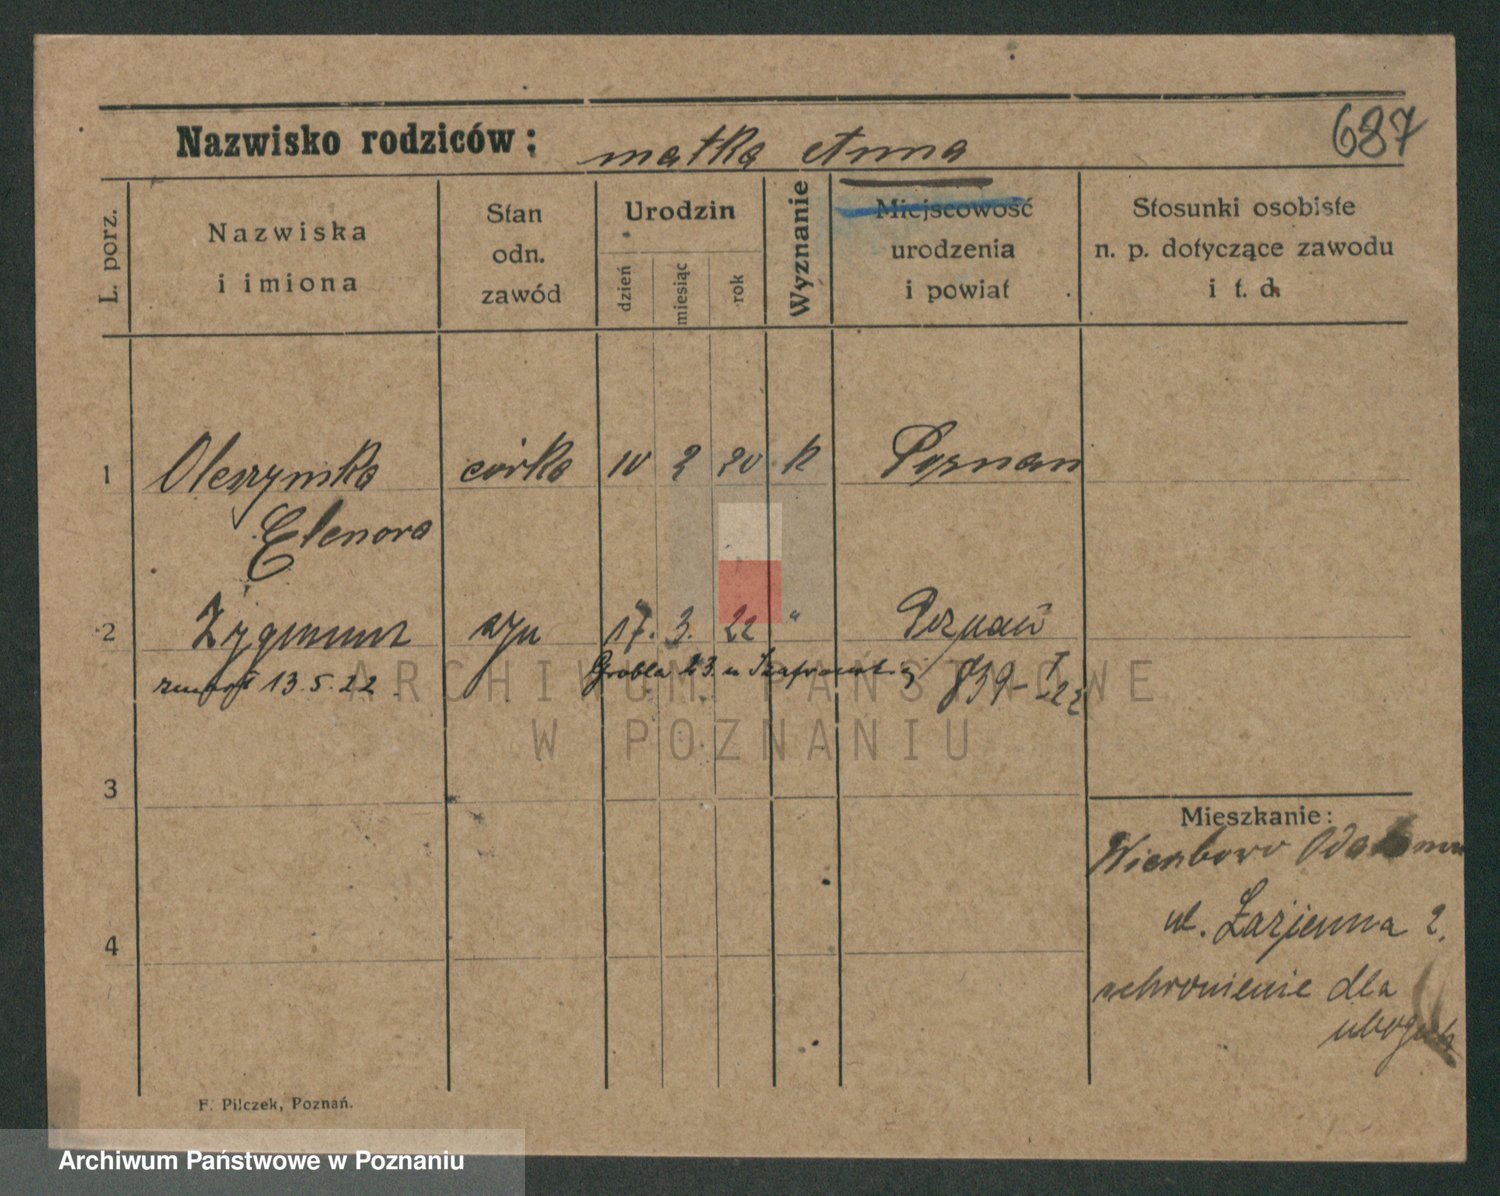 687
Nazwisko rodziców: matka Anna
L. porz.
Nazwiska
i imiona
Stan
odn.
zawód
Urodzin
dzień
miesiąc
rok
Wyznanie
Miejscowość
urodzenia
i powiat
Stosunki osobiste
n. p. dotyczące zawodu
i t. d.
1 Oleszynska córka 10 2 20 k Poznan
Elenora
2 Zygmunt syn 17. 3. 22 " Poznań
zmarł 13.5.22. Grobla 23 u
ARCHIWUM PAŃSTWOWE
W POZNANIU
3
4
Mieszkanie:
ul. Łazienna 2.
schronienie dla
ubogich
F. Pilczek, Poznań.
Archiwum Państwowe w Poznaniu